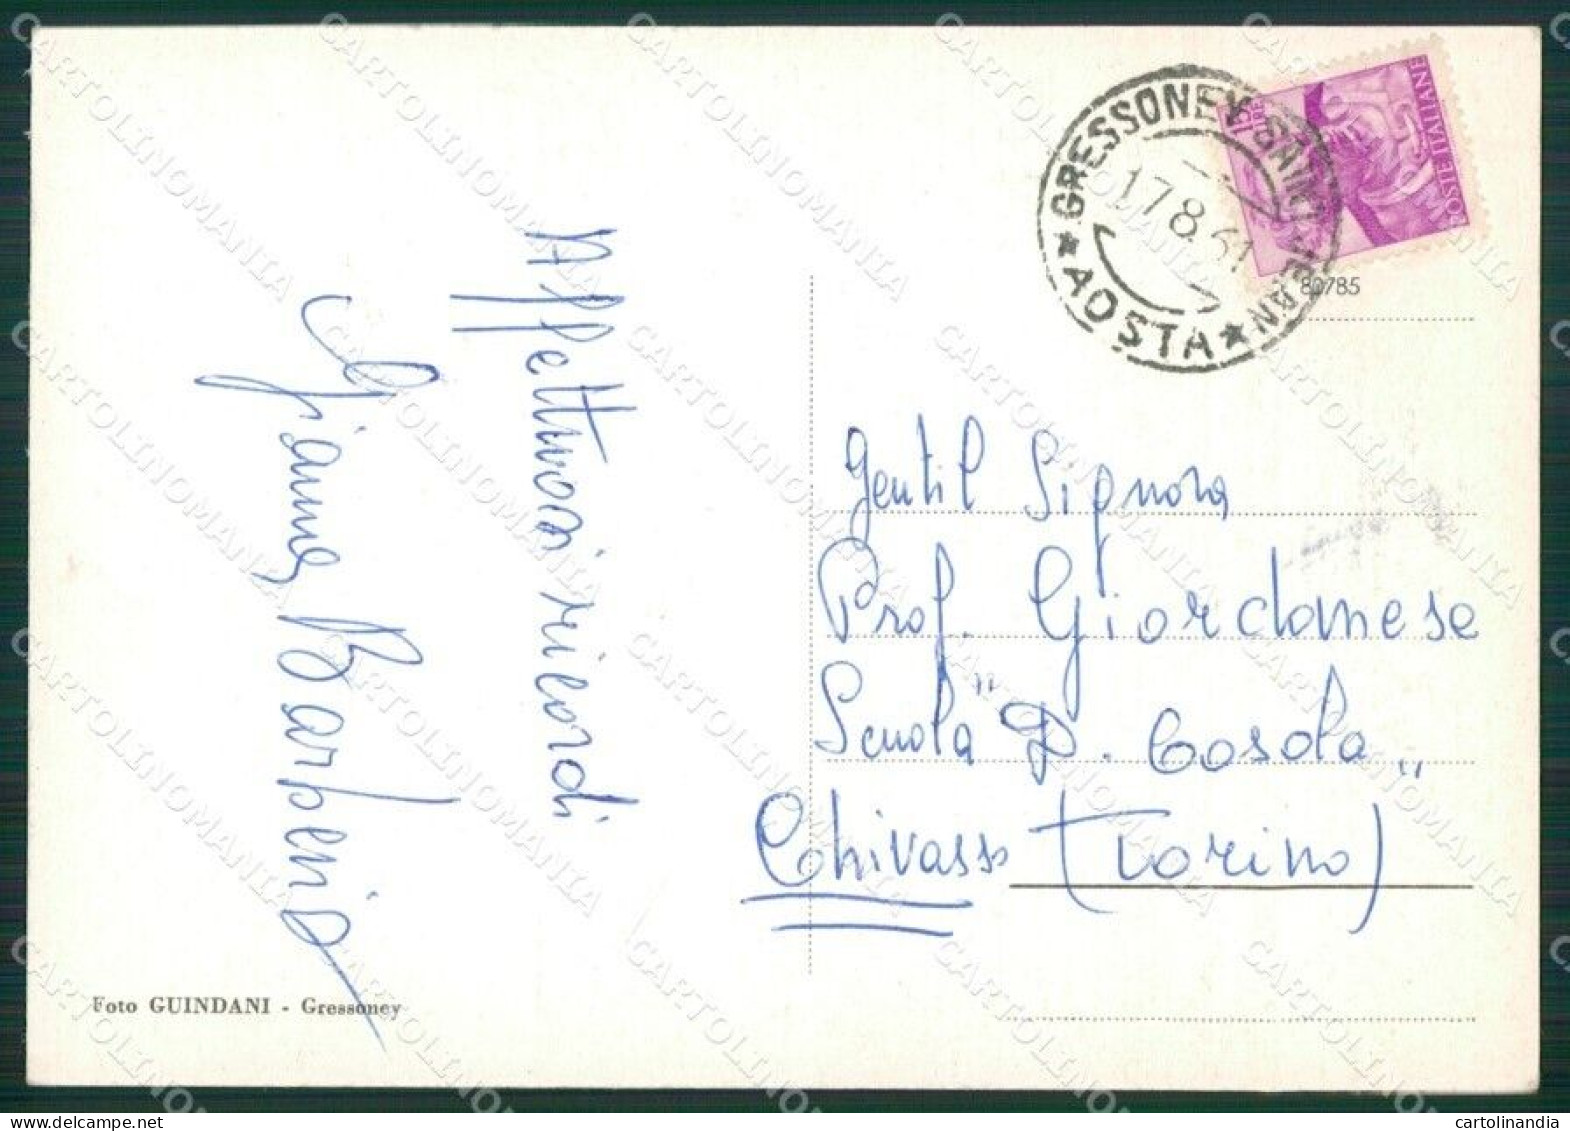 Affettuosi ricordi
Gianna Barberis
Foto GUINDANI - Gressoney
GRESSONEY SAINT JEAN
★ AOSTA ★
17.8.61
POSTE ITALIANE
LIRE 15
80785
Gentil Signora
Prof. Giordanese
Scuola "D. Cosola"
Chivasso (Torino)
CARTOLINOMANIA
cartolinandia